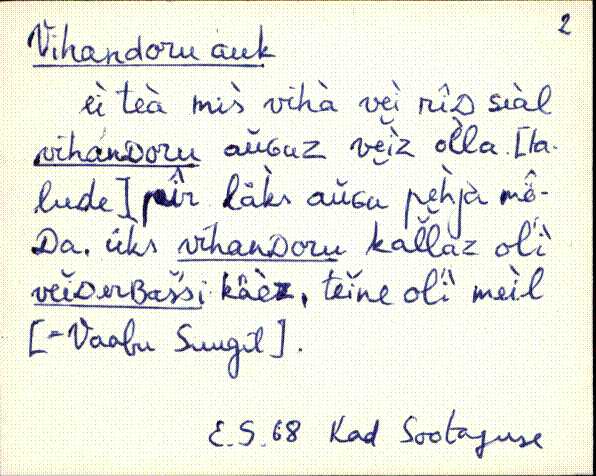 2
Vihandoru auk
èi teà mìs vihà vèi rîD sìal
vihanDoru aŭGuz vĕĭz òlla. [ta-
lude] pîr läks aŭGu pèhjà mȫ-
Da. üks vihanDoru kal̆laz olì
veĭDerBašši käèz, teĭne olì meìl
[= Vaabu Suugil].
E.S. 68 Kad Sootaguse